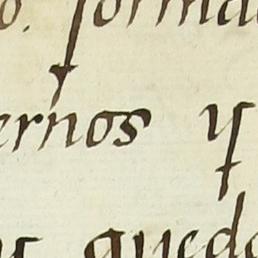 o. forma
ernos y
qued